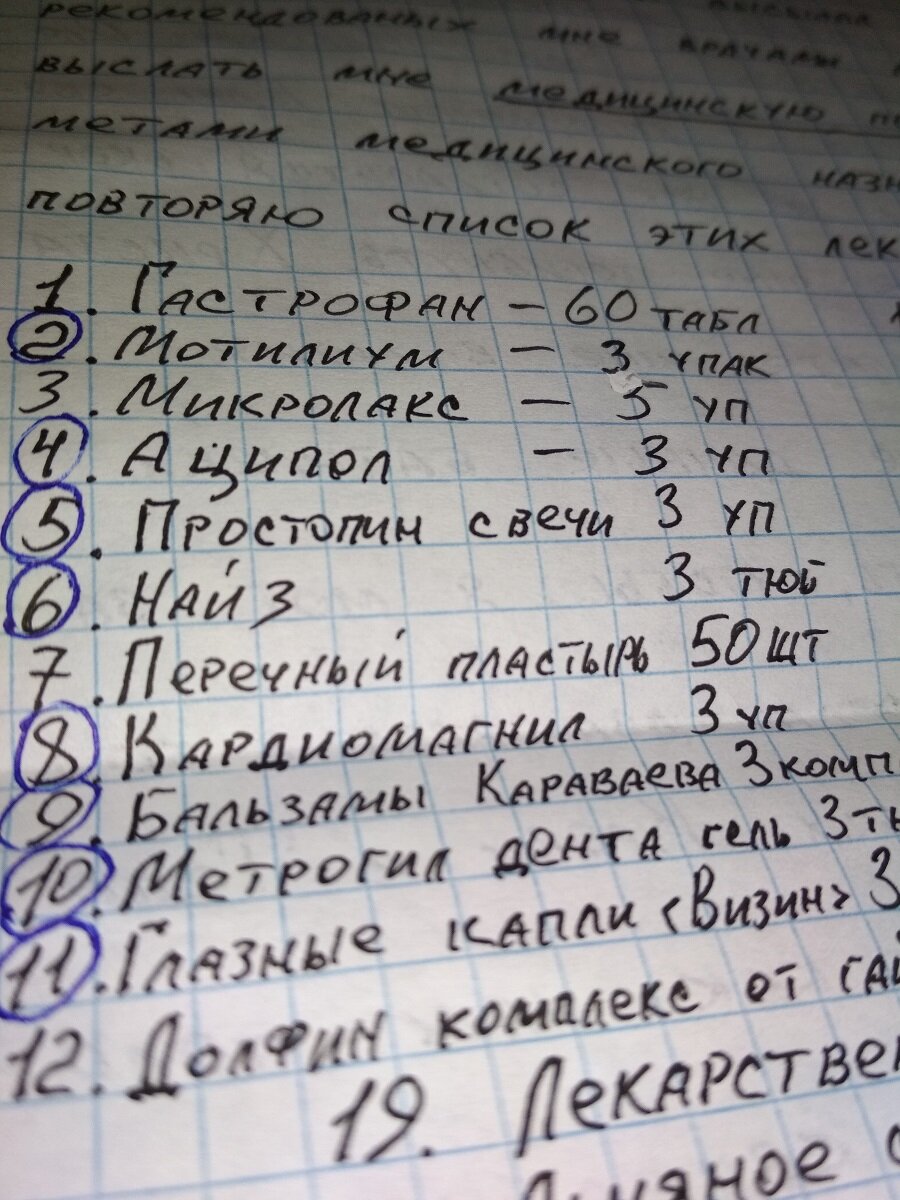 рекомендованых мне врачами
выслать мне медицинскую
метами медицинского
повторяю список этих лек
1. Гастрофан – 60 табл
2. Мотилиум – 3 упак
3. Микролакс – 5 уп
4. Аципол – 3 уп
5. Простопин свечи 3 уп
6. Найз 3 тюб
7. Перечный пластырь 50 шт
8. Кардиомагнил 3 уп
9. Бальзамы Караваева 3 комп
10. Метрогил дента гель 3 т
11. Глазные капли <Визин> 3
12. Долфин комплекс от гай
19. Лекарствен